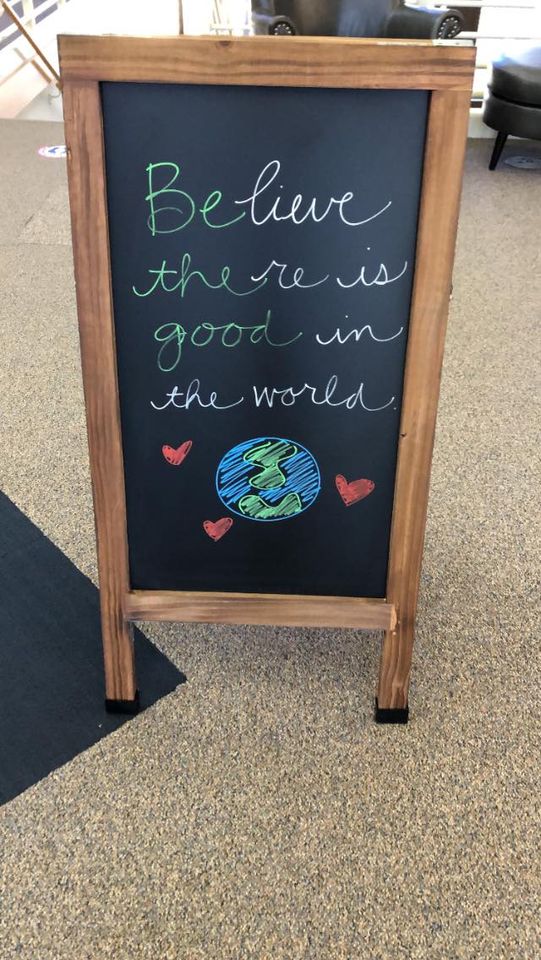 Believe
there is
good in
the world.